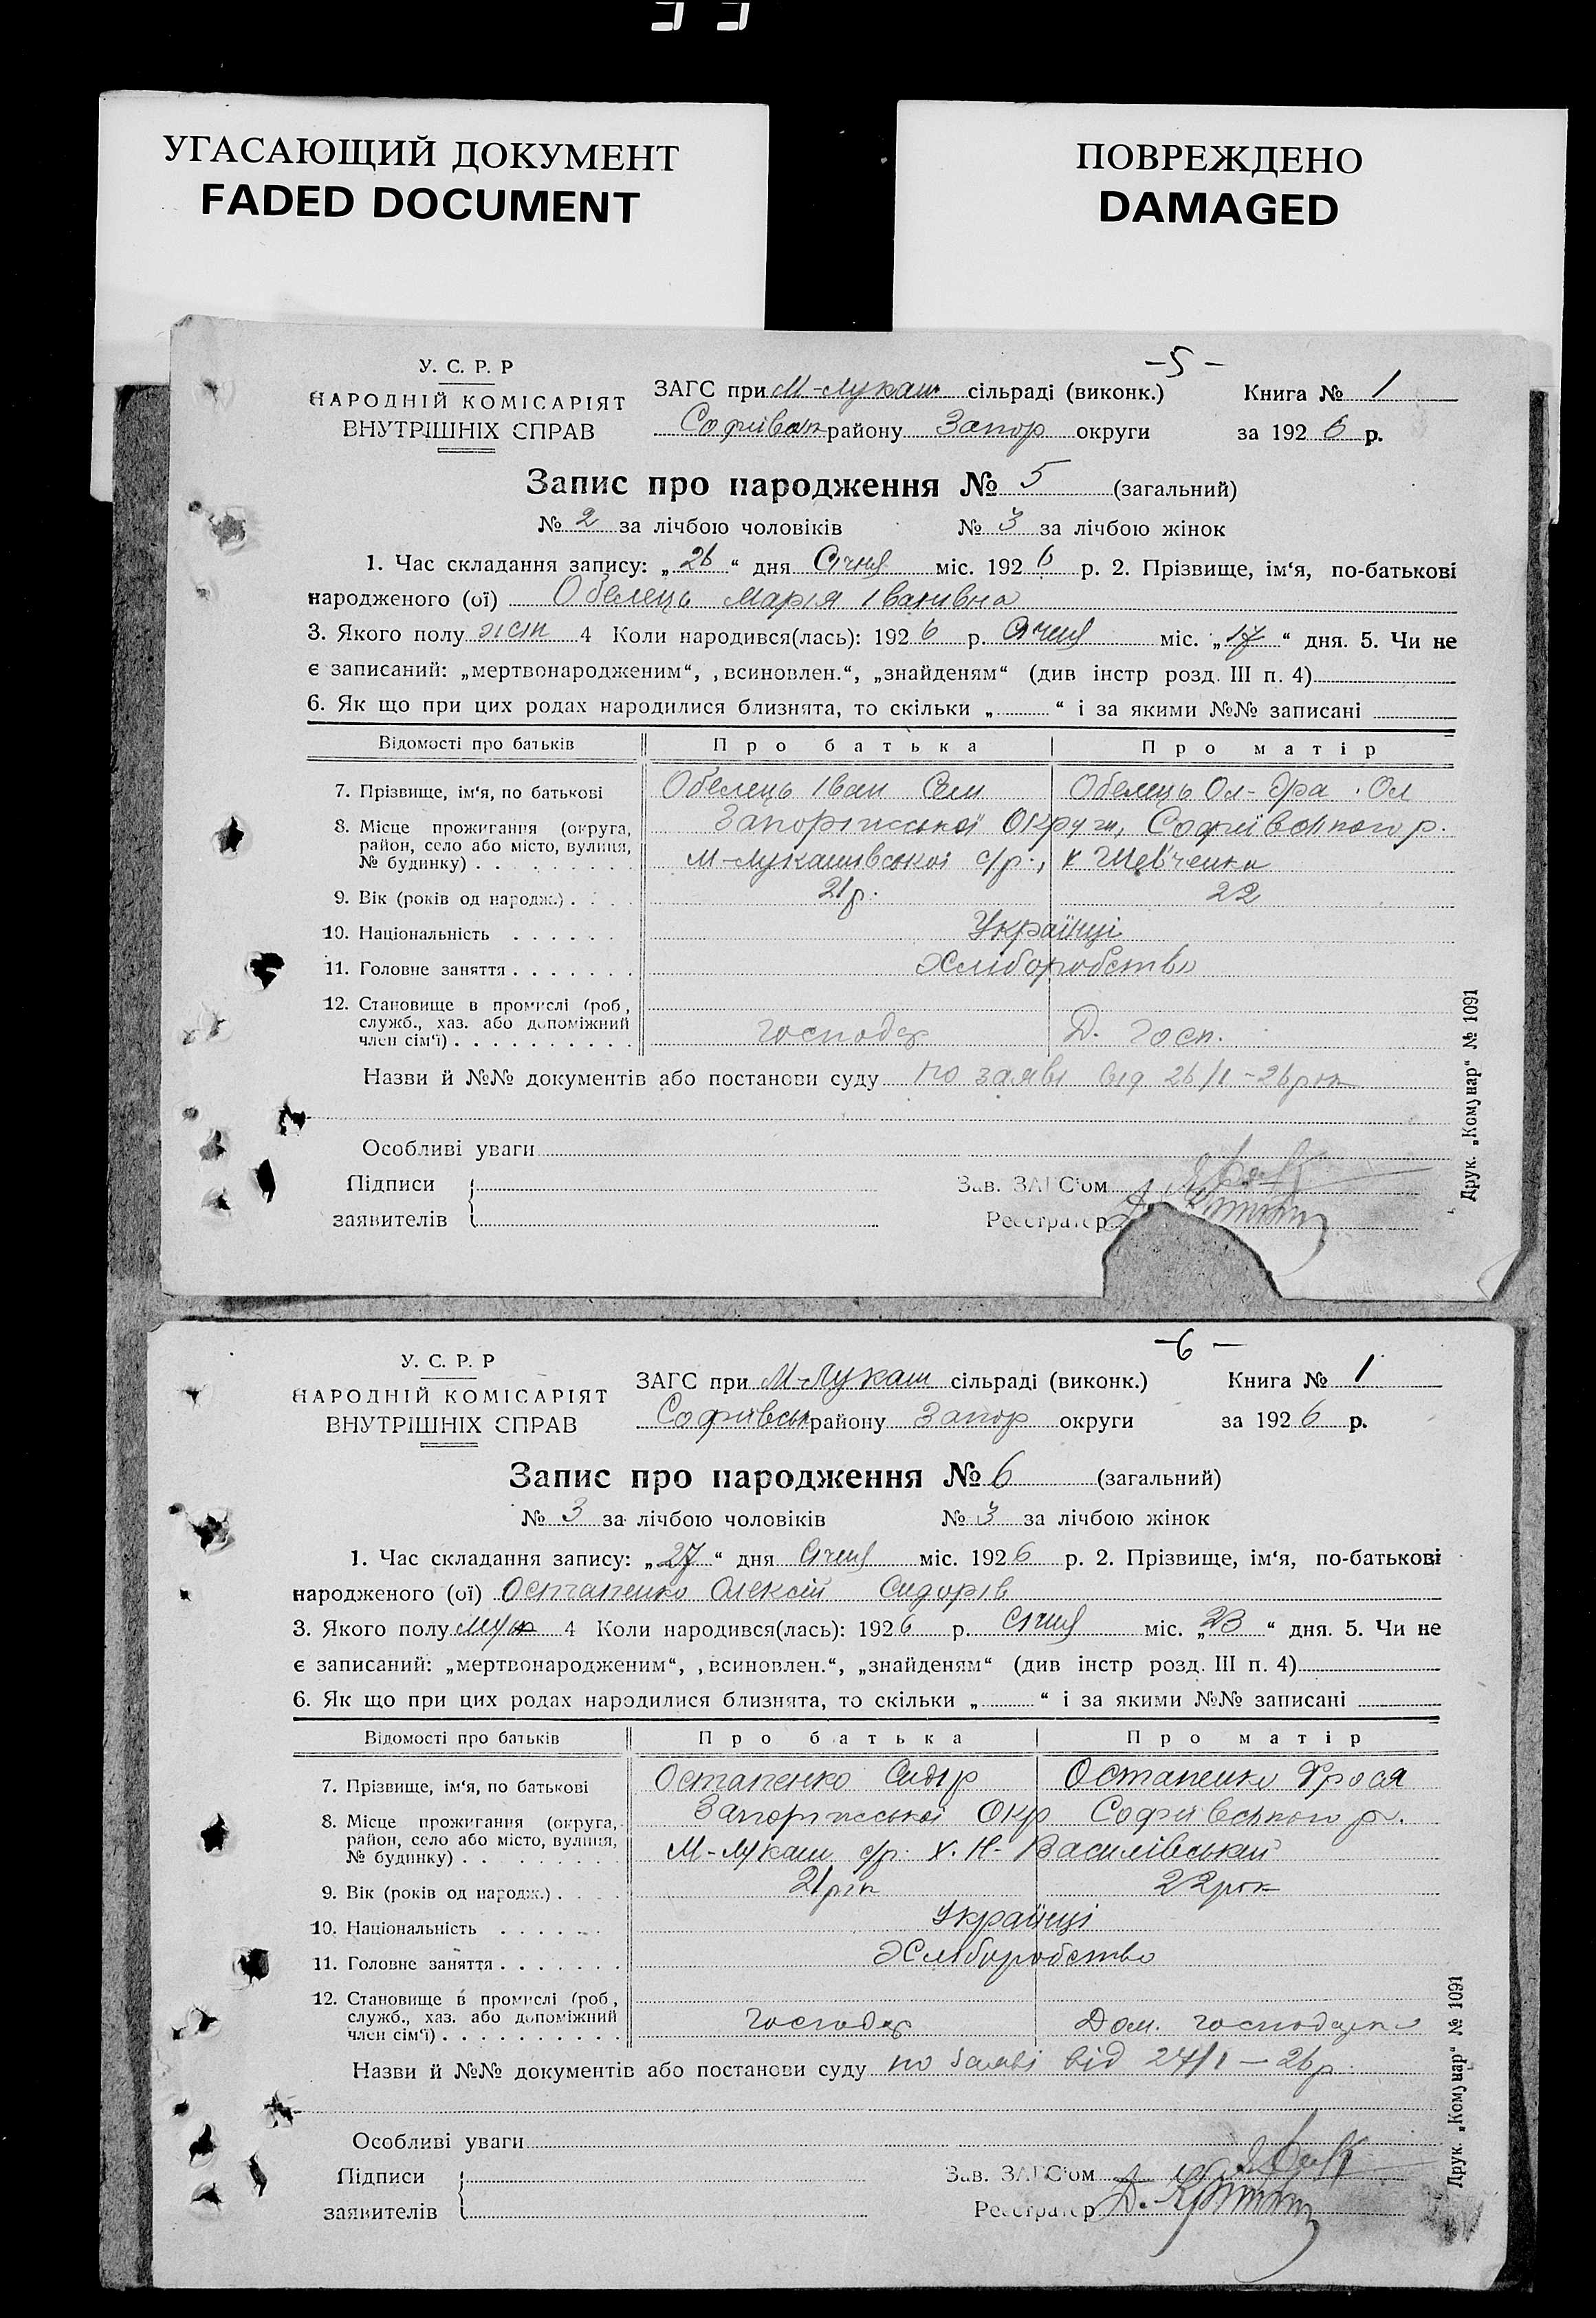 УГАСАЮЩИЙ ДОКУМЕНТ
FADED DOCUMENT
ПОВРЕЖДЕНО
DAMAGED
-5-
У. С. Р. Р
НАРОДНІЙ КОМІСАРІЯТ
ВНУТРІШНІХ СПРАВ
ЗАГС при М-Лукаш сільраді (виконк.) Книга № 1
Софиївськ району Запор округи за 1926 р.
Запис про народження № 5 (загальний)
№ 2 за лічбою чоловіків № 3 за лічбою жінок
1. Час складання запису: „26“ дня Січня міс. 1926 р. 2. Прізвище, ім‘я, по-батькові
народженого (ої) Обелець Марія Іванивна
3. Якого полу жін 4 Коли народився(лась): 1926 р. Січня міс. „17“ дня. 5. Чи не
є записаний: „мертвонародженим“, ‚всиновлен.“, „знайденям“ (див інстр розд. III п. 4)
6. Як що при цих родах народилися близнята, то скільки „ “ і за якими №№ записані
Відомості про батьків Про батька Про матір
7. Прізвище, ім‘я, по батькові Обелець Іван Сем Обелець Ол-дра Ол
8. Місце прожигання (округа, район, село або місто, вулиця, № будинку) Запоріжської Округи, Софиївського р.
М-Лукашівської с/р., х Шевченка
9. Вік (років од народж.) 21р. 22
10. Національність Українці
11. Головне заняття Хліборобство
12. Становище в промислі (роб, служб., хаз. або допоміжний член сім‘ї) господар Д. госп.
Назви й №№ документів або постанови суду по заяві від 26/I-26 рок
Особливі уваги
Підписи
заявителів
Зав. ЗАГС‘ом
Реєстратор
Друк. „Комунар“ № 1091
-6-
У. С. Р. Р
НАРОДНІЙ КОМІСАРІЯТ
ВНУТРІШНІХ СПРАВ
ЗАГС при М-Лукаш сільраді (виконк.) Книга № 1
Софиївськ району Запор округи за 1926 р.
Запис про народження № 6 (загальний)
№ 3 за лічбою чоловіків № 3 за лічбою жінок
1. Час складання запису: „27“ дня Січня міс. 1926 р. 2. Прізвище, ім‘я, по-батькові
народженого (ої) Остапенко Олексій Сидорів
3. Якого полу муж 4 Коли народився(лась): 1926 р. Січня міс. „23“ дня. 5. Чи не
є записаний: „мертвонародженим“, ‚всиновлен.“, „знайденям“ (див інстр розд. III п. 4)
6. Як що при цих родах народилися близнята, то скільки „ “ і за якими №№ записані
Відомості про батьків Про батька Про матір
7. Прізвище, ім‘я, по батькові Остапенко Сидір Остапенко Фрося
8. Місце прожигання (округа, район, село або місто, вулиця, № будинку) Запоріжської Окр Софиївського р.
М-Лукаш с/р. х. Н-Василівський
9. Вік (років од народж.) 21 рік 22 рок
10. Національність Українці
11. Головне заняття Хліборобство
12. Становище в промислі (роб, служб., хаз. або допоміжний член сім‘ї) господар Дом. господарка
Назви й №№ документів або постанови суду по заяві від 27/I-26р.
Особливі уваги
Підписи
заявителів
Зав. ЗАГС‘ом
Реєстратор Д.
Друк. „Комунар“ № 1091